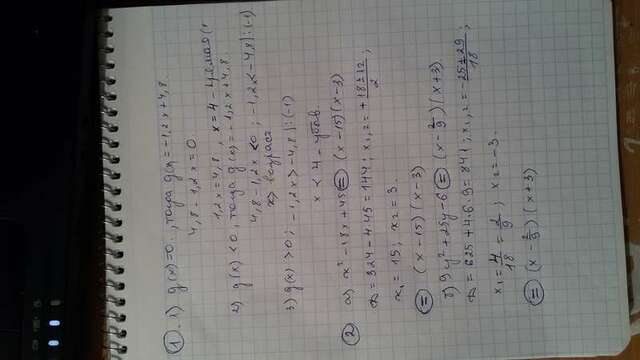 ① 1) g(x)=0, тогда g(x) = -1,2x+4,8
4,8 - 1,2x = 0
1,2x = 4,8, x = 4 -
2) g(x) < 0, тогда g(x) = -1,2x+4,8
4,8 - 1,2x < 0; -1,2x < -4,8 | :(-1)
x > возраст
3) g(x) > 0; -1,2x > -4,8 | :(-1)
x < 4 - убыв.
② а) x² - 18x + 45 = (x-15)(x-3)
D = 324 - 4·45 = 144; x₁,₂ = +18±12/2;
x₁ = 15; x₂ = 3.
= (x-15)(x-3)
б) 9y² + 25y - 6 = (x - 2/9)(x+3)
D = 625 + 4·6·9 = 841; x₁,₂ = -25±29/18;
x₁ = 4/18 = 2/9; x₂ = -3.
= (x - 2/9)(x+3)